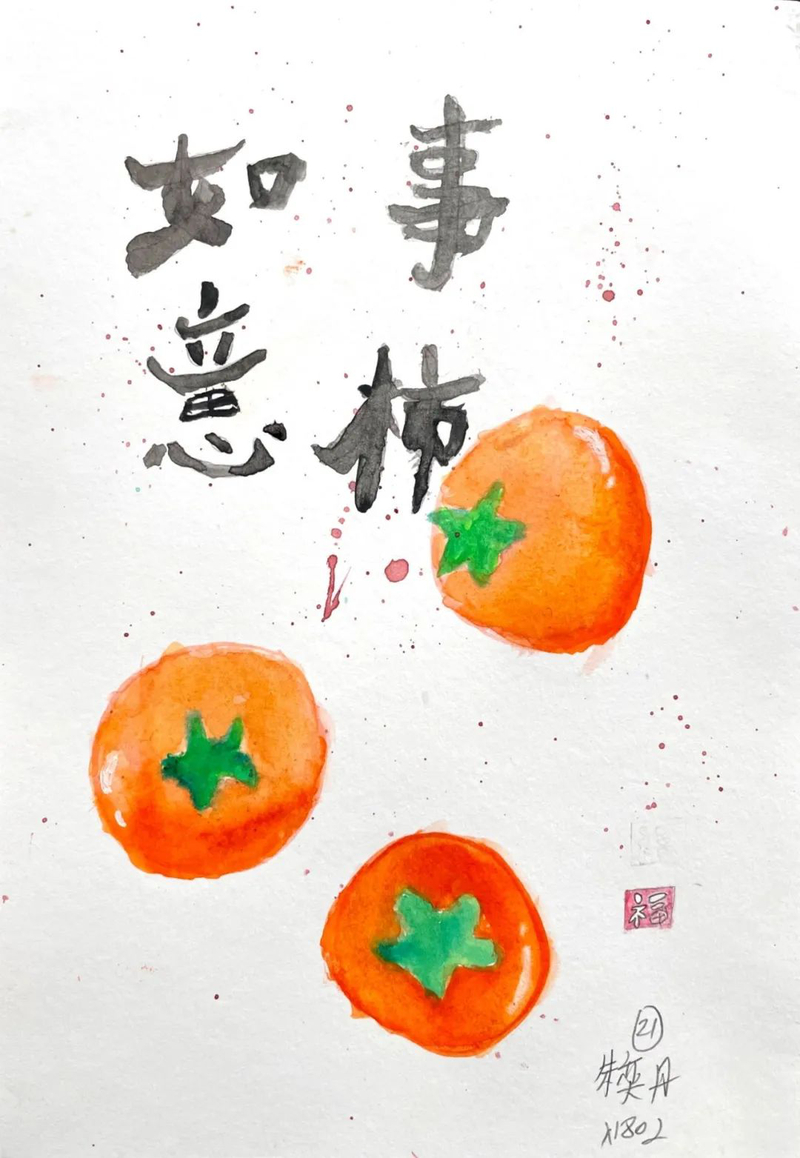 事柿
如意
福
21
朱奕丹
x1802